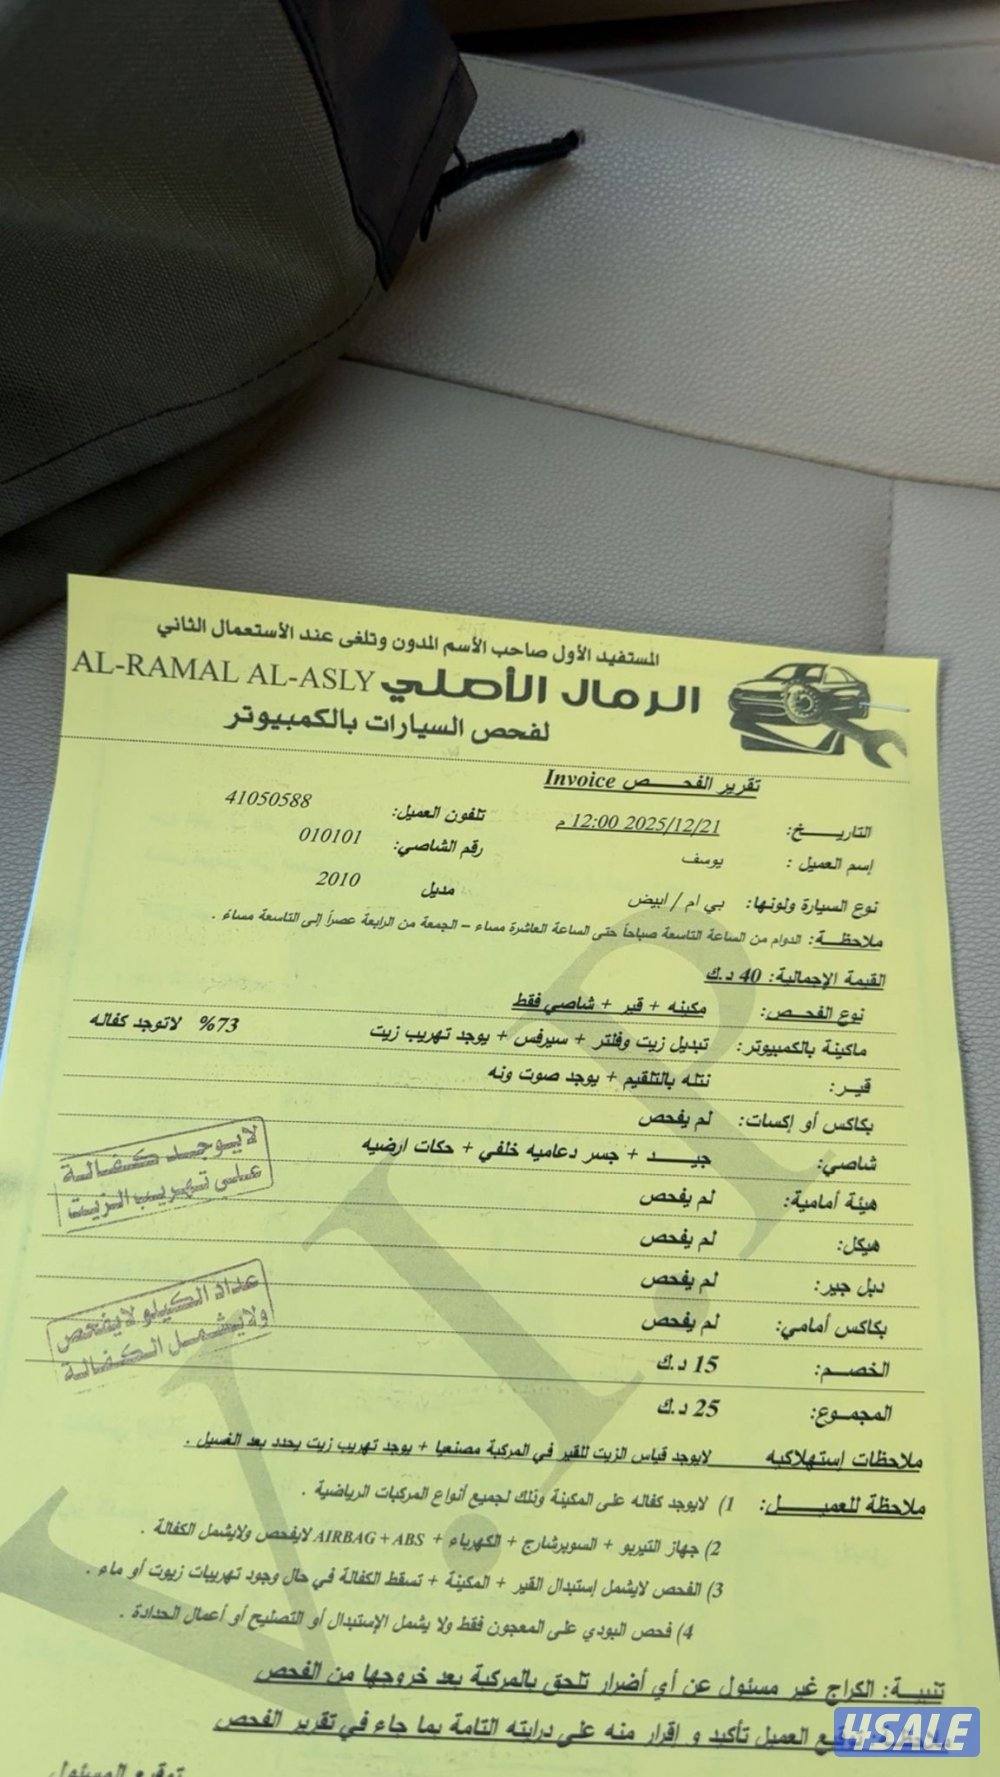 المستفيد الأول صاحب الأسم المدون وتلغى عند الأستعمال الثاني
الرمال الأصلي AL-RAMAL AL-ASLY
لفحص السيارات بالكمبيوتر
تقرير الفحـــــص Invoice
التاريـــــخ: 2025/12/21 12:00 م تلفون العميل: 41050588
إسم العميل : يوسف رقم الشاصي: 010101
نوع السيارة ولونها: بي ام / ابيض مديل 2010
ملاحظـــة: الدوام من الساعة التاسعة صباحاً حتى الساعة العاشرة مساء – الجمعة من الرابعة عصراً إلى التاسعة مساءً .
القيمة الإجمالية: 40 د.ك
نوع الفحـــص: مكينه + قير + شاصي فقط
ماكينة بالكمبيوتر: تبديل زيت وفلتر + سيرفس + يوجد تهريب زيت 73% لاتوجد كفاله
قيـــر: نتله بالتلقيم + يوجد صوت ونه
بكاكس أو إكسات: لم يفحص
شاصي: جيـــــد + جسر دعاميه خلفي + حكات ارضيه
هيئة أمامية: لم يفحص
هيكل: لم يفحص
دبل جير: لم يفحص
بكاكس أمامي: لم يفحص
الخصـــم: 15 د.ك
المجمــوع: 25 د.ك
لايوجد كفالة
على تهريب الزيت
عداد الكيلو لايفحص
ولايشمل الكفالة
ملاحظات إستهلاكيه لايوجد قياس الزيت للقير في المركبة مصنعيا + يوجد تهريب زيت يحدد بعد الغسيل .
ملاحظة للعميـــــل: 1) لايوجد كفاله على المكينة وتلك لجميع أنواع المركبات الرياضية .
2) جهاز التيربو + السوبرشارج + الكهرباء + AIRBAG + ABS لايفحص ولايشمل الكفالة .
3) الفحص لايشمل إستبدال القير + المكينة + تسقط الكفالة في حال وجود تهريبات زيوت أو ماء .
4) فحص البودي على المعجون فقط ولا يشمل الإستبدال أو التصليح أو أعمال الحدادة .
تنبيـــة: الكراج غير مسئول عن أي أضرار تلحق بالمركبة بعد خروجها من الفحص
العميل تأكيد و إقرار منه على درايته التامة بما جاء في تقرير الفحص
توقيع المسئول
V.I.P
4SALE